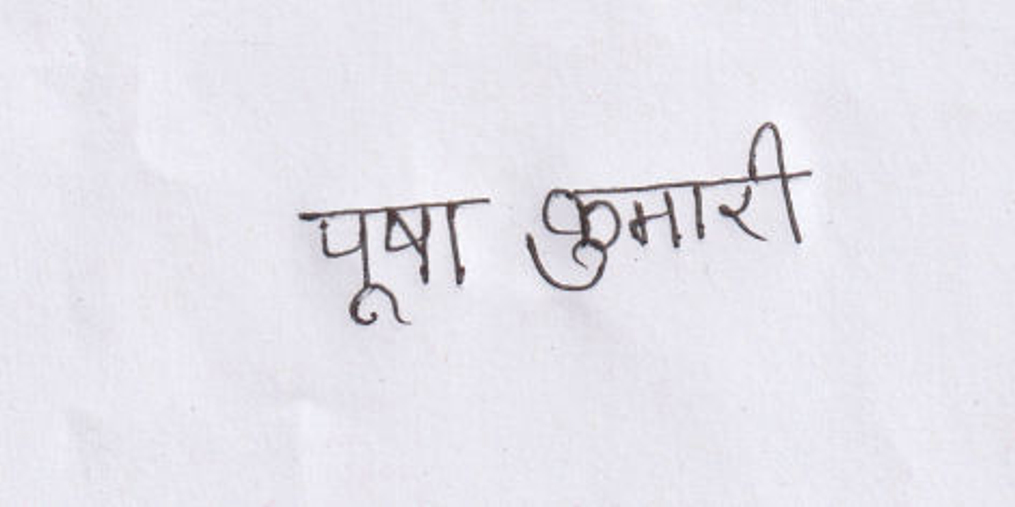 पूषा कुमारी